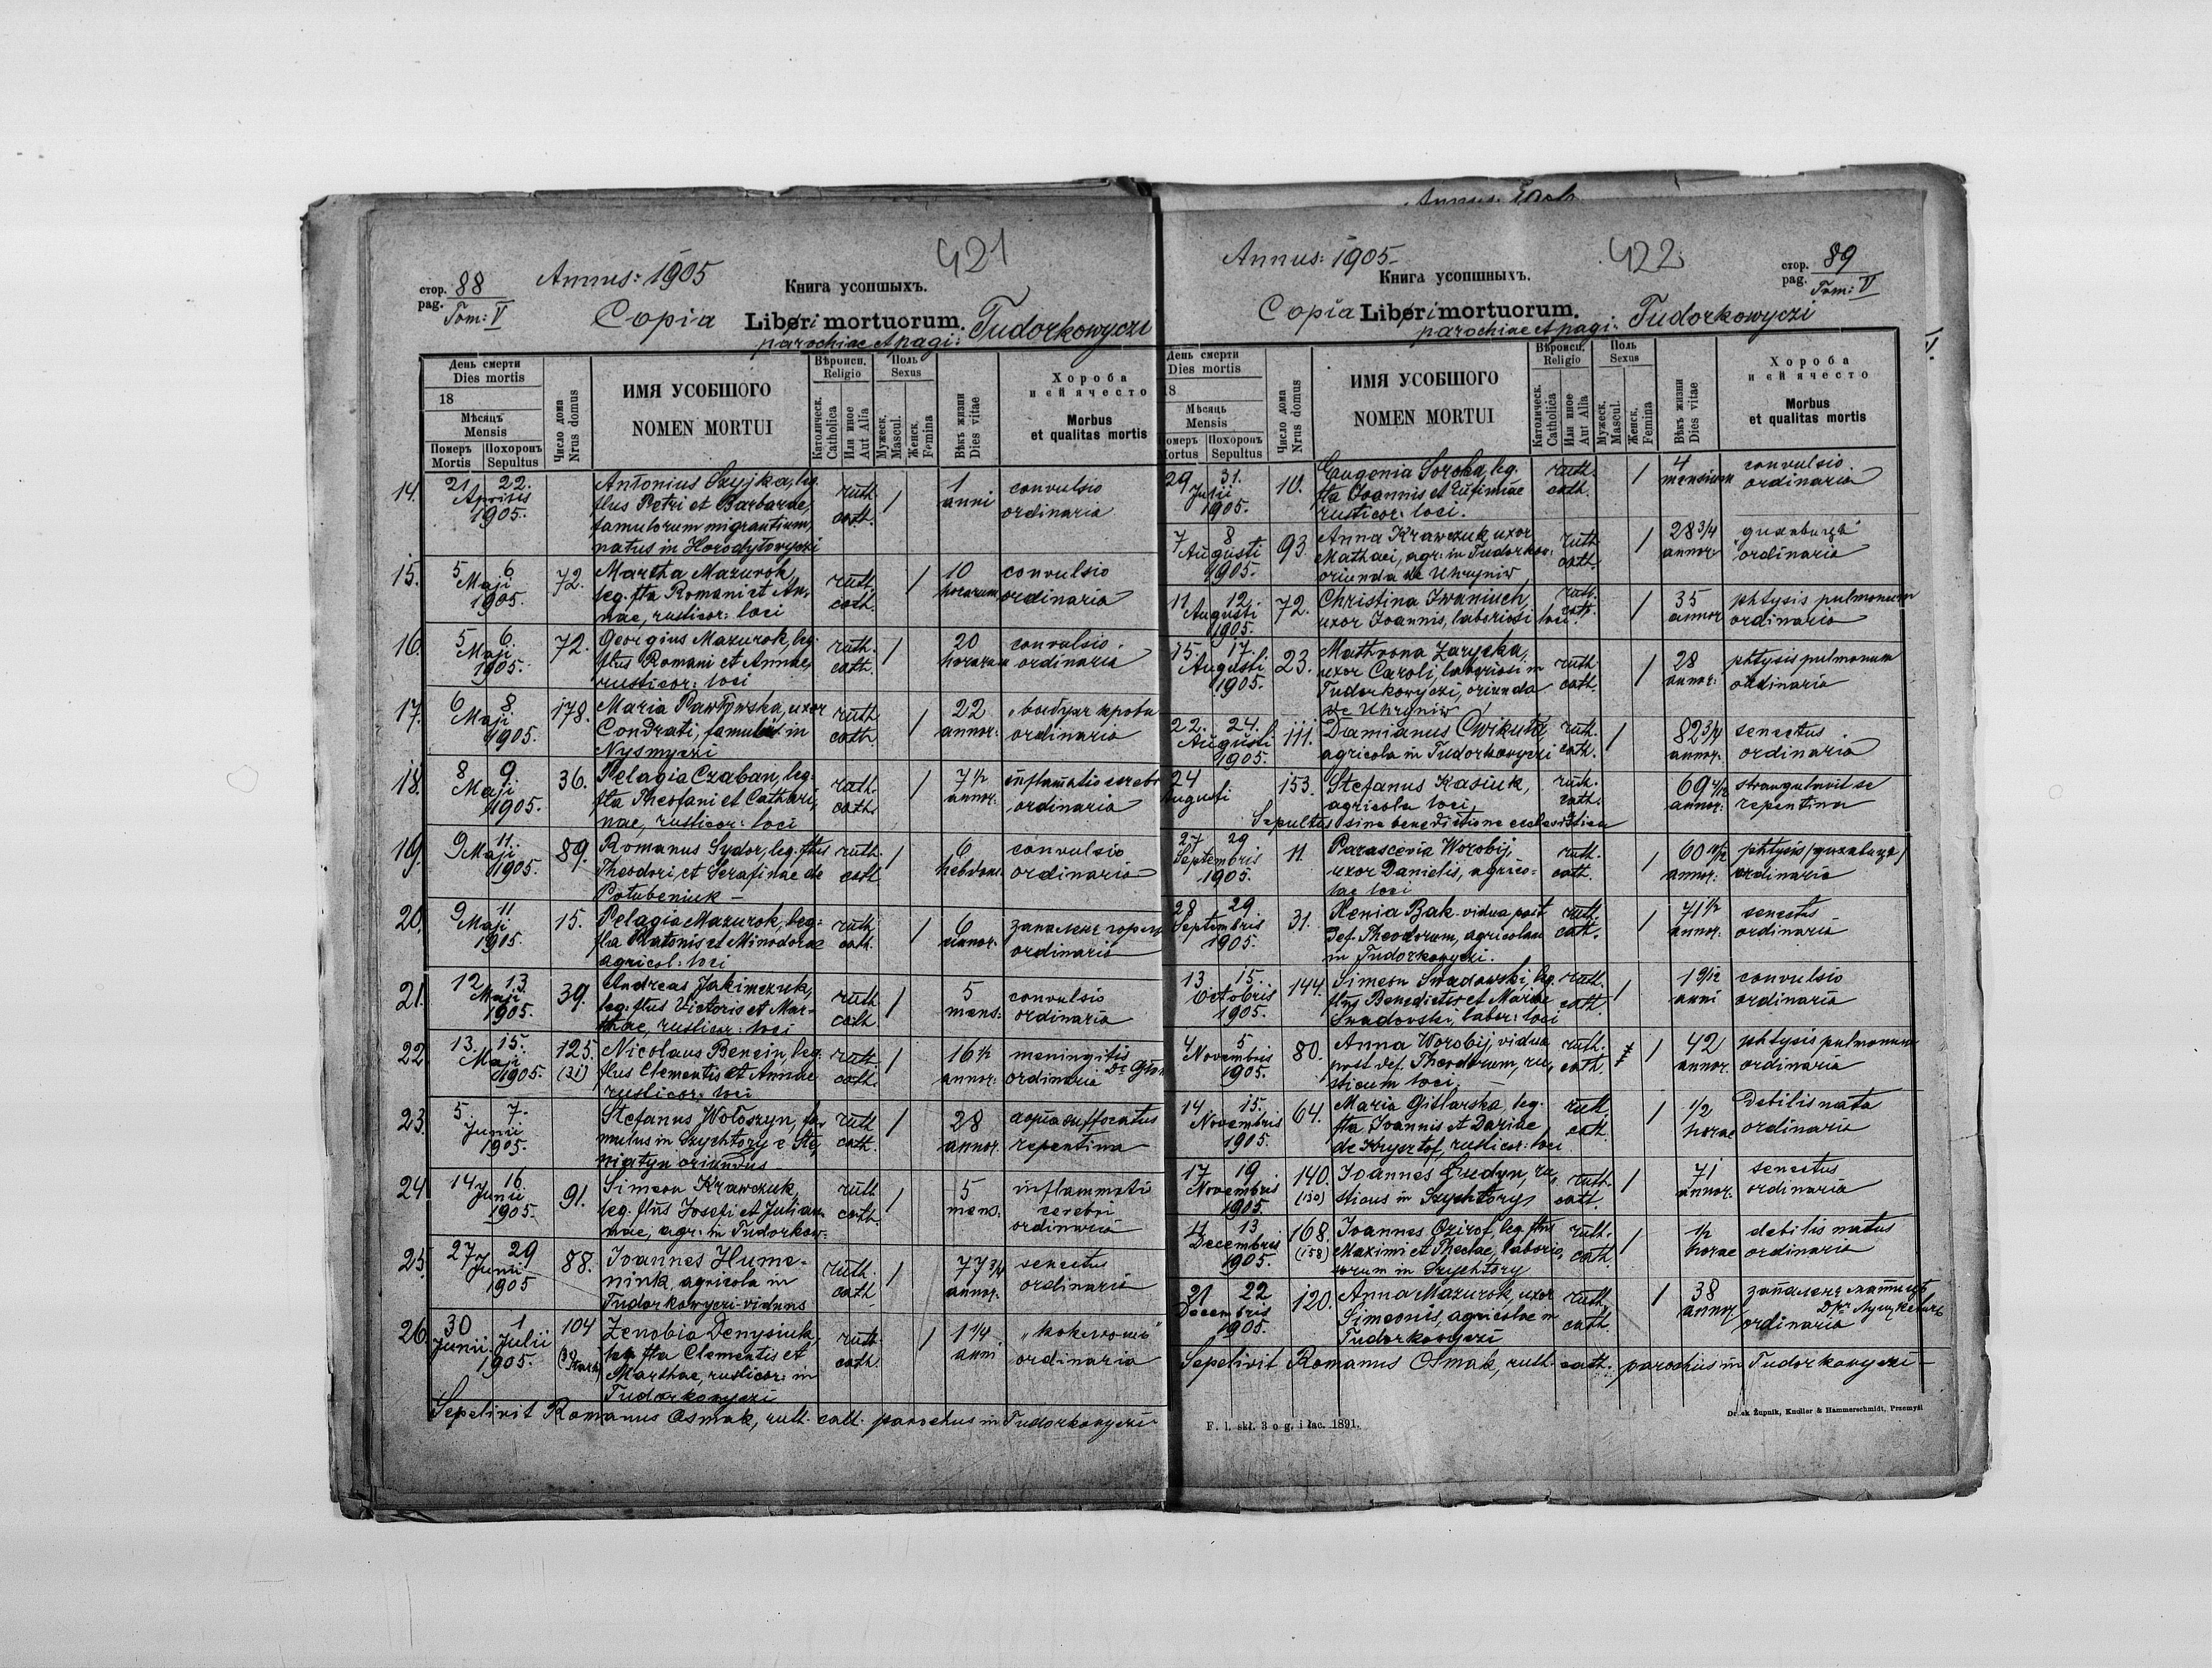 Annus: 1905
421
стор. 88
pag.
Tom: V
Книга усопшыхъ.
Copia Liberi mortuorum. Tudorkowyczi
parochiae et pagi:
День смерти
Dies mortis
18
Мѣсяцъ
Mensis
Померъ Похоронъ
Mortis Sepultus
Число дома
Nrus domus
ИМЯ УСОБШОГО
NOMEN MORTUI
Вѣроисп.
Religio
Католическ.
Catholica
Или иное
Aut Alia
Поль
Sexus
Мужеск.
Mascul.
Женск.
Femina
Вѣкъ жизни
Dies vitae
Хороба
и еи ячесто
Morbus
et qualitas mortis
14. 21 22. Antonius Szyjka, leg. ruth. / 1 convulsio
Aprilis flius Petri et Barbarae, cath. anni ordinaria
1905. famulorum migrantium,
natus in Horodyłowyczi
15. 5 6 72. Martha Mazurok, ruth. / 10 convulsio
Maji leg. flia Romani et An- cath. horarum ordinaria
1905. nae, rusticor: loci
16. 5 6. 72. Georgius Mazurok, leg. ruth. / 20 convulsio
Maji flius Romani et Annae, cath. horarum ordinaria
1905. rusticor: loci
17. 6 8 178. Maria Pawłowska, uxor ruth. / 22
Maji Condrati, famuli in cath. annor: ordinaria
1905. Nysmyczi
18. 8 9. 36. Pelagia Czaban, leg. ruth. / 7 1/2 inflamatio cerebri
Maji flia Theofani et Cathari- cath. annor: ordinaria
1905. nae, rusticor: loci
19. 9 11. 89. Romanus Sydor, leg. flius ruth. / 6 convulsio
Maji Theodori et Serafinae de cath. hebdom. ordinaria
1905. Połubeniuk –
20. 9 11 15. Pelagia Mazurok, leg= ruth. / 6
Maji flia Platonis et Minodorae cath. annor. ordinaria
1905. agricol: loci
21. 12 13. 39. Andreas Jakimczuk, ruth. / 5 convulsio
Maji leg. flius Victoris et Mar- cath. mens: ordinaria
1905. thae, rusticor: loci
22. 13. 15. 125. Nicolaus Bencin, leg. ruth. / 16 1/2 meningitis
Maji (31) flius Clementis et Annae cath. annor: ordinaria
1905. rusticor: loci
23. 5 7. Stefanus Wołoszyn, fa- ruth. / 28 aqua suffocatus
Junii mulus in Szychtory e Sta- cath. annor. repentina
1905. niatyn oriundus –
24 14 16. 91. Simeon Krawczuk, ruth. / 5 inflammati
Junii leg. flius Josefi et Julian- cath. mens: cerebri
1905. nae, agr: in Tudorkow: ordinaria
25. 27 29 88. Ioannes Hume- ruth. / 77 3/4 senectus
Junii niuk, agricola in cath. annor. ordinaria
1905 Tudorkowyczi-viduus
26. 30 1 104 Zenobia Denysiuk, ruth. / 1 1/4
Junii Julii leg. flia Clementis et cath. anni ordinaria
1905. Marthae, rusticor: in
Tudorkowyczi
Sepelivit Romanus Osmak, ruth. cath. parochus in Tudorkowyczi
Annus: 1905
Annus: 1905-
422
стор. 89
pag.
Tom: V
Книга усопшныхъ.
Copia Liberi mortuorum. Tudorkowyczi
parochiae et pagi:
День смерти
Dies mortis
18
Мѣсяць
Mensis
Померъ Похоронъ
Mortus Sepultus
Число дома
Nrus domus
ИМЯ УСОБШОГО
NOMEN MORTUI
Вѣроисп.
Religio
Католическ.
Catholica
Или иное
Aut Alia
Поль
Sexus
Мужеск.
Mascul.
Женск.
Femina
Вѣкъ жизни
Dies vitae
Хороба
и еи ячесто
Morbus
et qualitas mortis
29 31. 10. Eugenia Soroka, leg. ruth. / 4 convulsio
Julii flia Joannis et Eufimiae cath. mensium ordinaria
1905. rusticor: loci.
7 8 93. Anna Krawczuk, uxor ruth. / 28 3/4
Augusti Mathaei, agr: in Tudorkow: cath. annor ordinaria
1905. oriunda de Uhryniw
11 12. 72. Christina Iwaniuch, ruth. / 35 phtysis pulmonum
Augusti uxor Joannis, laboriosi loci. cath. annor ordinaria
1905.
15. 17. 23. Mathrona Zarycka, ruth. / 28 phtysis pulmonum
Augusti uxor Caroli, laboriosi in cath. annor: ordinaria
1905. Tudorkowyczi, oriunda
de Uhryniw
22. 24. 111. Damianus Cwikuła, ruth. / 82 3/4 senectus
Augusti agricola in Tudorkowyczi cath. annor. ordinaria
1905.
24 153. Stefanus Kasiuk, ruth. 69 strangulavit se
Augusti agricola loci, cath. annor: repentina
Sepultus sine benedictione ecclesiastica
27 29 11. Parascevia Worobij, ruth. / 60 10/12 phtysis
Septembris uxor Danielis, agrico= cath. annor: ordinaria
1905. lae loci
28 29 31. Xenia Bak-vidua post ruth. / 71 1/2 senectus
Septembris def. Theodorum, agricolam cath. annor: ordinaria
1905. in Tudorkowyczi.
13 15. 144. Simeon Swadowski, leg. ruth. / 1 9/12 convulsio
Octobris flius Benedicti et Mariae cath. anni ordinaria
1905. Swadowski, labor: loci
4 5 80. Anna Worobij, vidua ruth. / 42 phtysis pulmonum
Novembris post def. Theodorum, ru- cath. annor. ordinaria
1905. sticum loci.
14 15. 64. Maria Gitlarska, leg. ruth. / 1/2 debilis nata
Novembris flia Ioannis et Dariae cath. horae ordinaria
1905. de Krysztof, rusticor: loci
17 19 140. Ioannes Gredyn, ru- ruth. / 71 senectus
Novembris (130) sticus in Szychtory cath. annor. ordinaria
1905.
11 13 168. Ioannes Ozirof, leg. flius ruth. / 1/2 debilis natus
Decembris (158) Maximi et Theclae, laborio- cath. horae ordinaria
1905. sorum in Szychtory
21 22 120. Anna Mazurok, uxor ruth. / 38
Decembris Simeonis, agricolae in cath. annor. ordinaria
1905. Tudorkowyczi
Sepelivit Romanus Osmak, ruth. cath. parochus in Tudorkowyczi –
F. 1. skł. 3 o g. i łac. 1891.
Druk Żupnik, Knoller & Hammerschmidt, Przemyśl